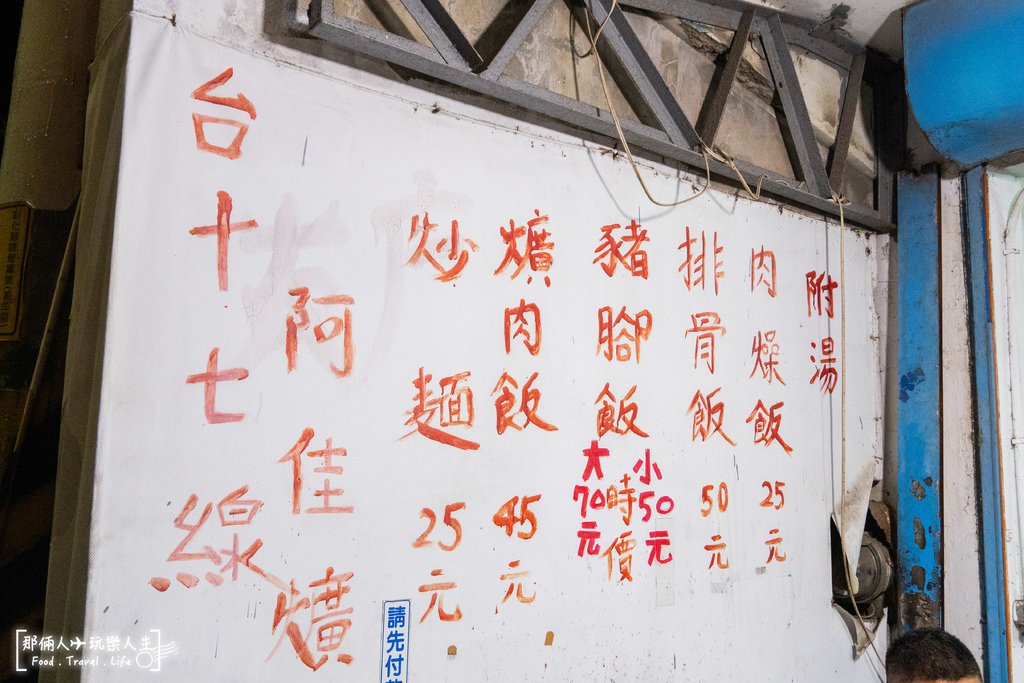 附湯
肉燥飯 25元
排骨飯 50元
豬腳飯 時價
小50元
大70元
爌肉飯 45元
炒麵 25元
阿佳爌
台十七線
請先付
那倆人玩樂人生
Food . Travel . Life